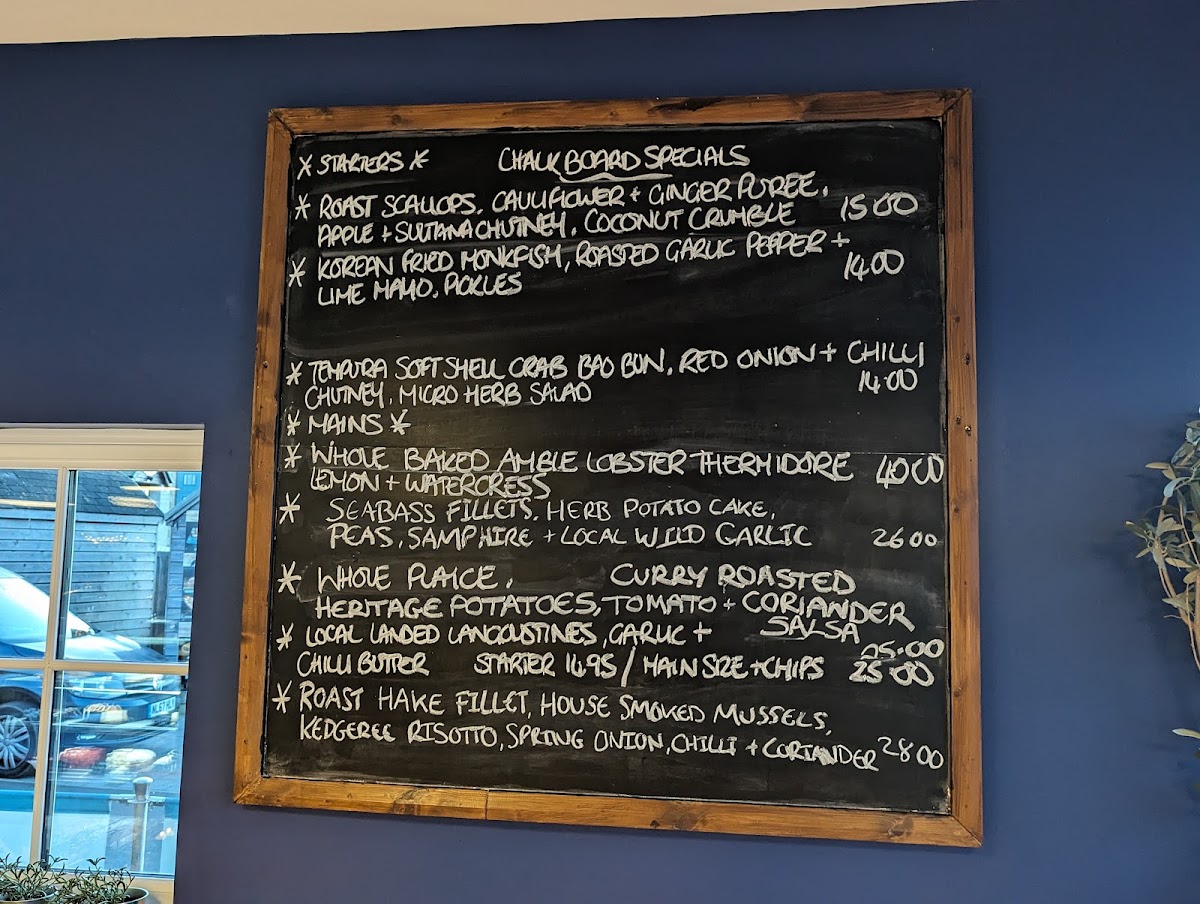 * STARTERS * CHALKBOARD SPECIALS
* ROAST SCALLOPS, CAULIFLOWER + GINGER PUREE,
APPLE + SULTANA CHUTNEY, COCONUT CRUMBLE 15.00
* KOREAN FRIED MONKFISH, ROASTED GARLIC PEPPER +
LIME MAYO, PICKLES 14.00
* TEMPURA SOFT SHELL CRAB BAO BUN, RED ONION + CHILLI
CHUTNEY, MICRO HERB SALAD 14.00
* MAINS *
* WHOLE BAKED AMBLE LOBSTER THERMIDORE 40.00
LEMON + WATERCRESS
* SEABASS FILLETS, HERB POTATO CAKE,
PEAS, SAMPHIRE + LOCAL WILD GARLIC 26.00
* WHOLE PLAICE, CURRY ROASTED
HERITAGE POTATOES, TOMATO + CORIANDER
SALSA 25.00
* LOCAL LANDED LANGOUSTINES, GARLIC +
CHILLI BUTTER STARTER 14.95 / MAIN SIZE + CHIPS 25.00
* ROAST HAKE FILLET, HOUSE SMOKED MUSSELS,
KEDGEREE RISOTTO, SPRING ONION, CHILLI + CORIANDER 28.00